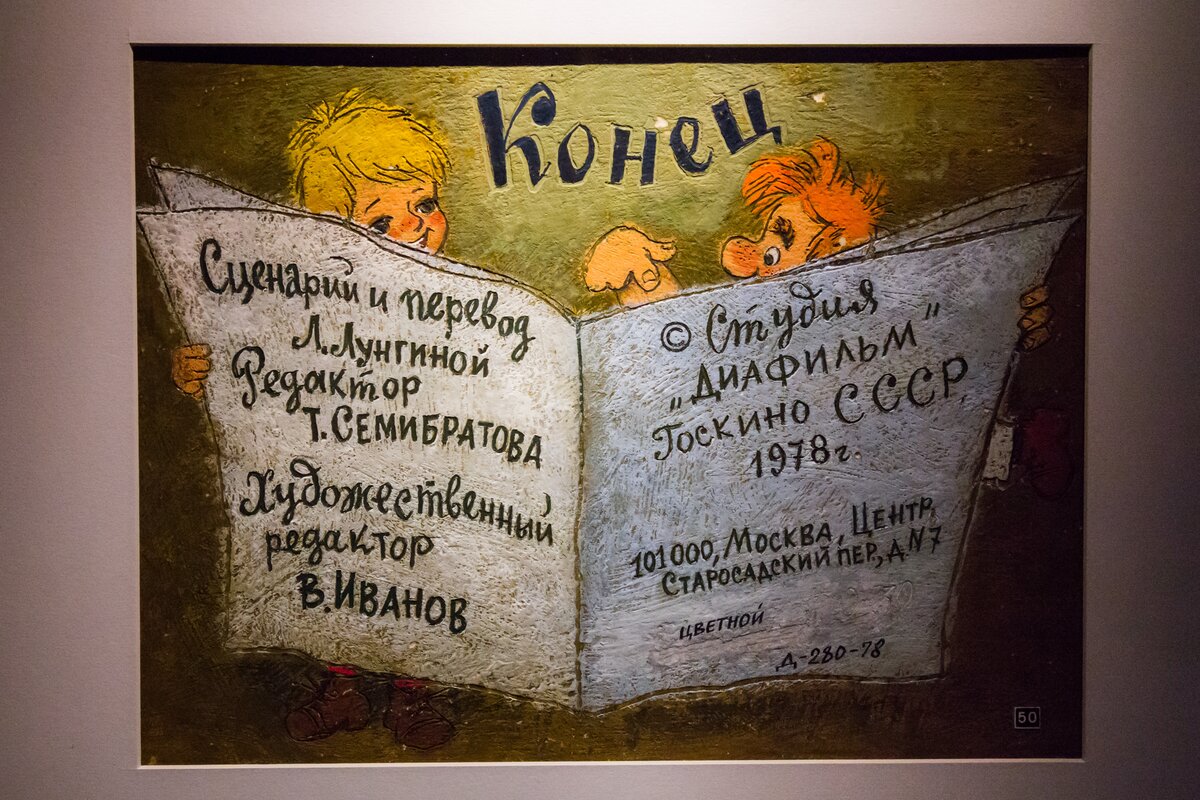 Конец
Сценарий и перевод
Л. Лунгиной
Редактор
Т. СЕМИБРАТОВА
Художественный
редактор
В. ИВАНОВ
© Студия
„ДИАФИЛЬМ"
Госкино СССР,
1978 г.
101000, МОСКВА, ЦЕНТР,
СТАРОСАДСКИЙ ПЕР., Д. N 7
ЦВЕТНОЙ
Д-280-78
50